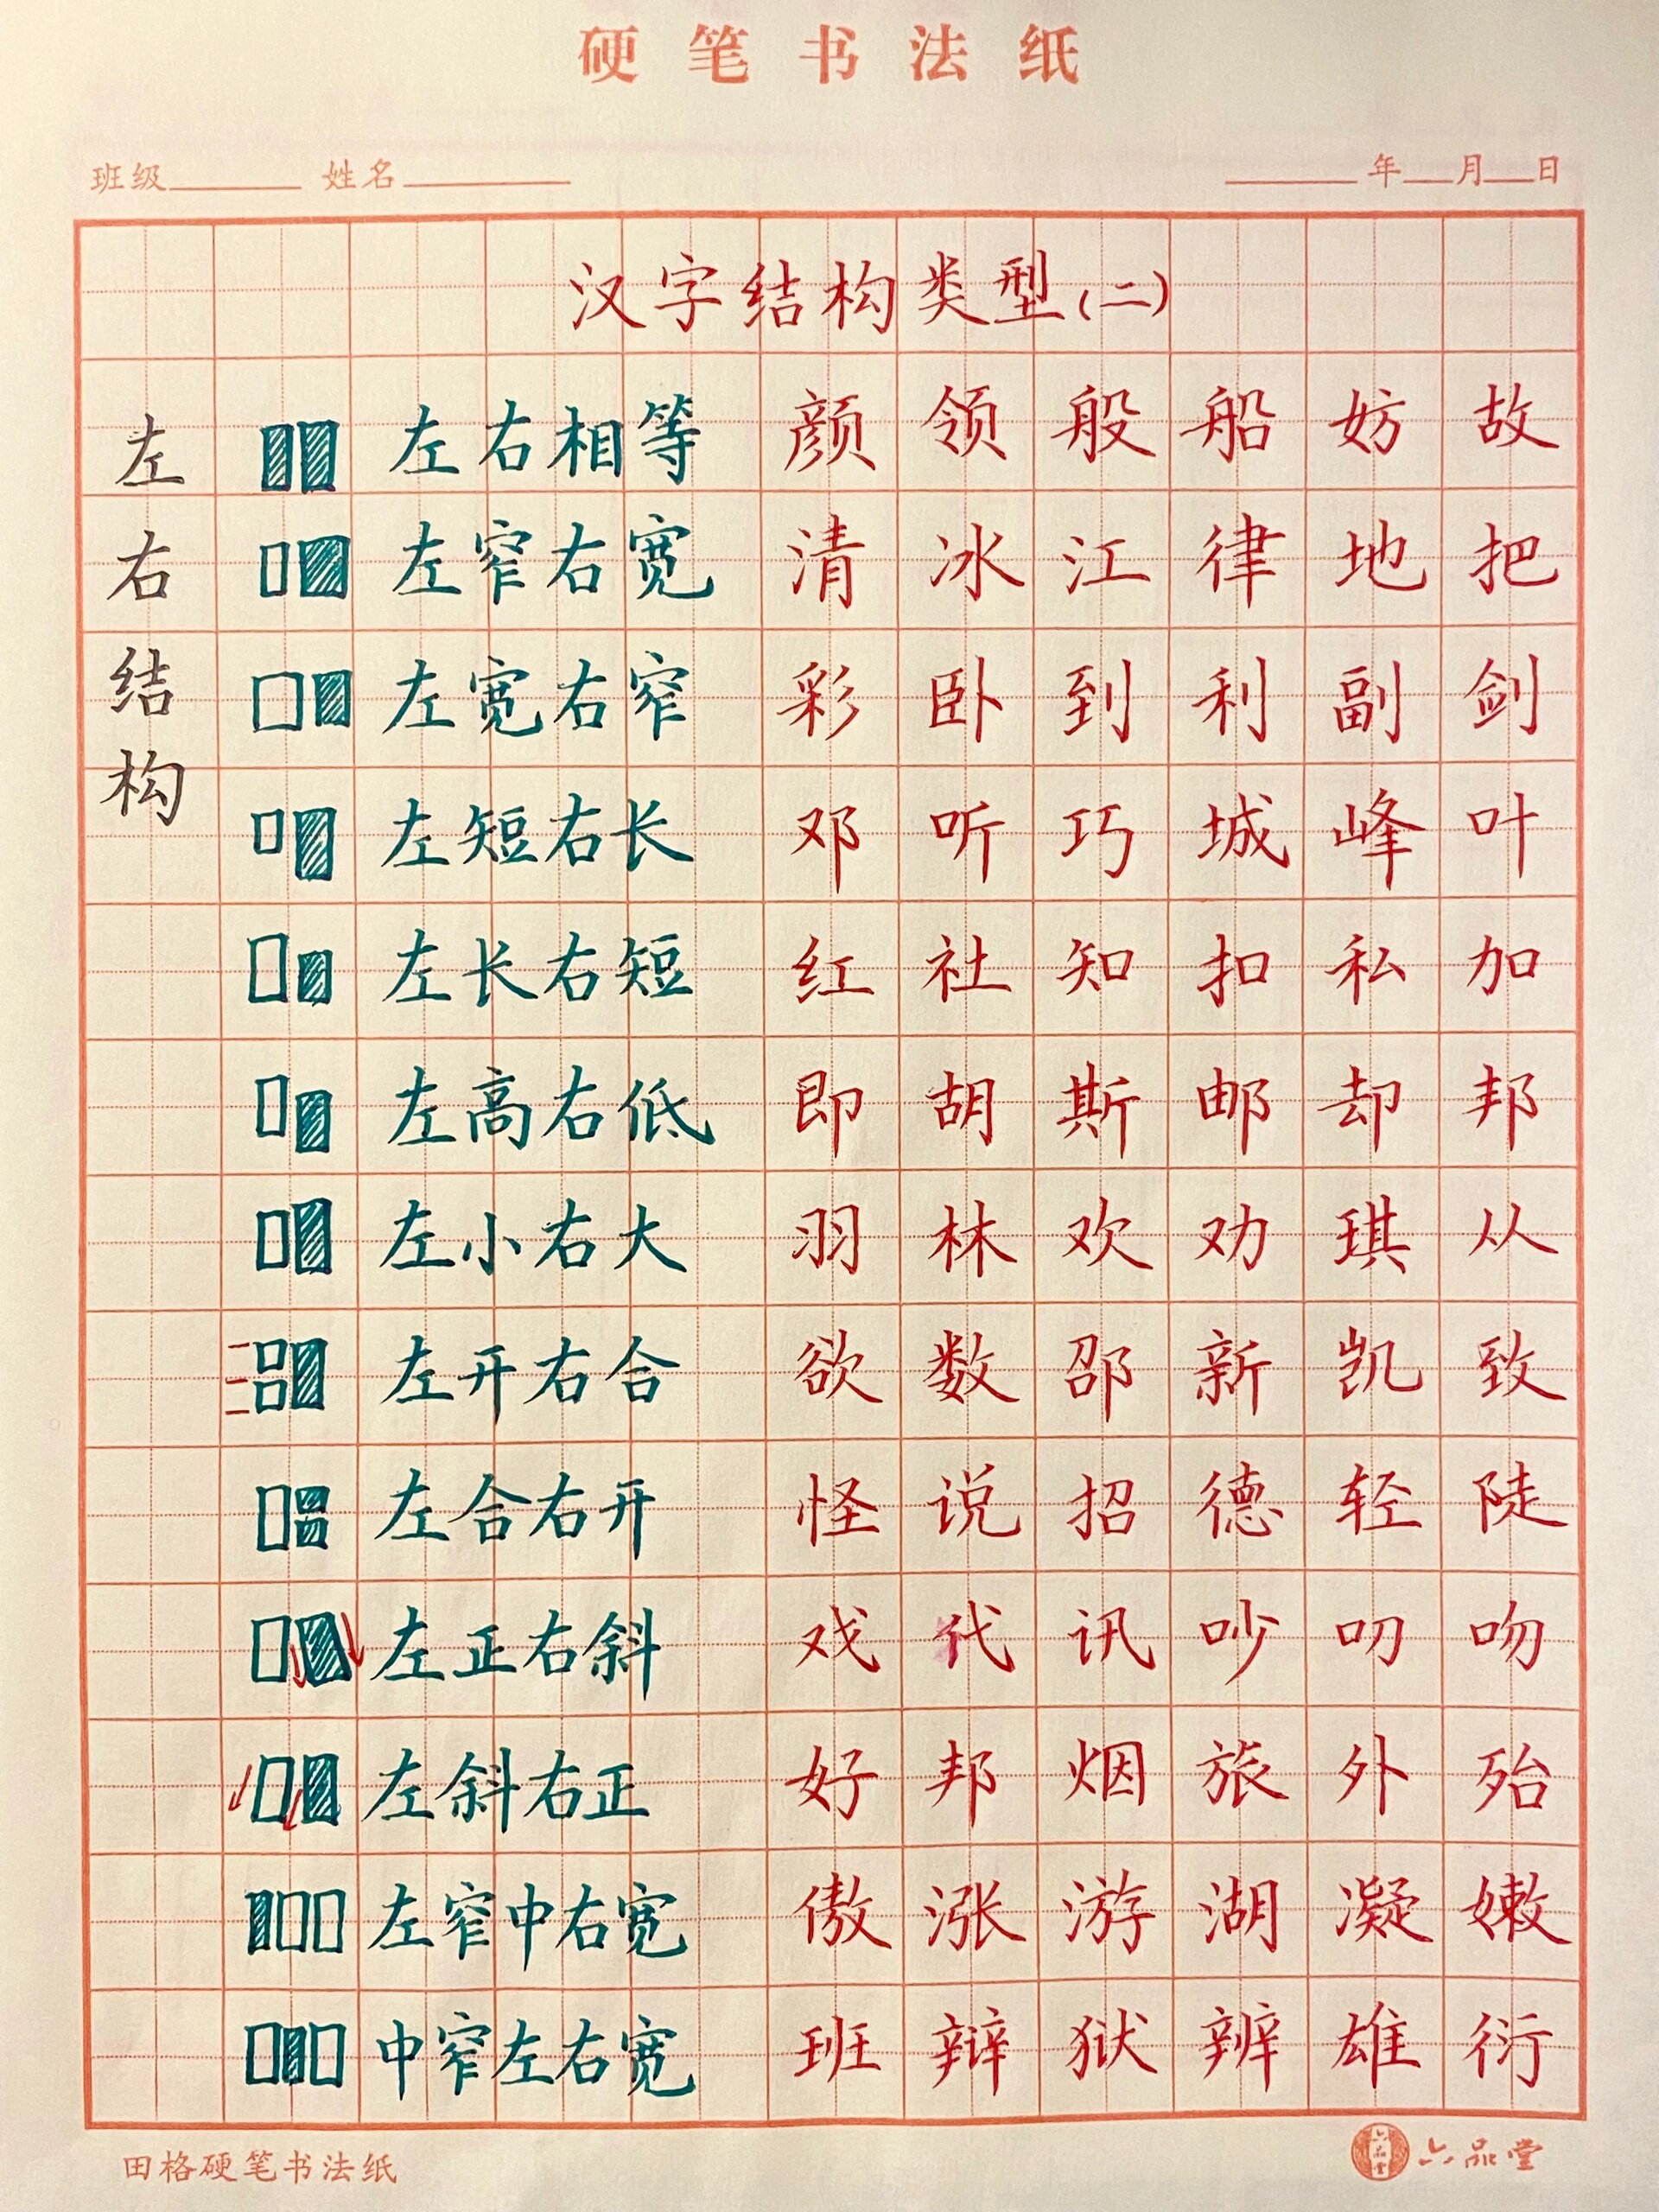 硬笔书法纸
班级 姓名 年 月 日
汉字结构类型(二)
左右结构
左右相等 颜 领 般 船 妨 故
左窄右宽 清 冰 江 律 地 把
左宽右窄 彩 卧 到 利 副 剑
左短右长 邓 听 巧 城 峰 叶
左长右短 红 社 知 扣 私 加
左高右低 即 胡 斯 邮 却 邦
左小右大 羽 林 欢 劝 琪 从
左开右合 欲 数 邵 新 凯 致
左合右开 怪 说 招 德 轻 陡
左正右斜 戏 代 讯 吵 叨 吻
左斜右正 好 邦 烟 旅 外 殆
左窄中右宽 傲 涨 游 湖 凝 嫩
中窄左右宽 班 辩 狱 辨 雄 衍
田格硬笔书法纸
六品堂
六品堂